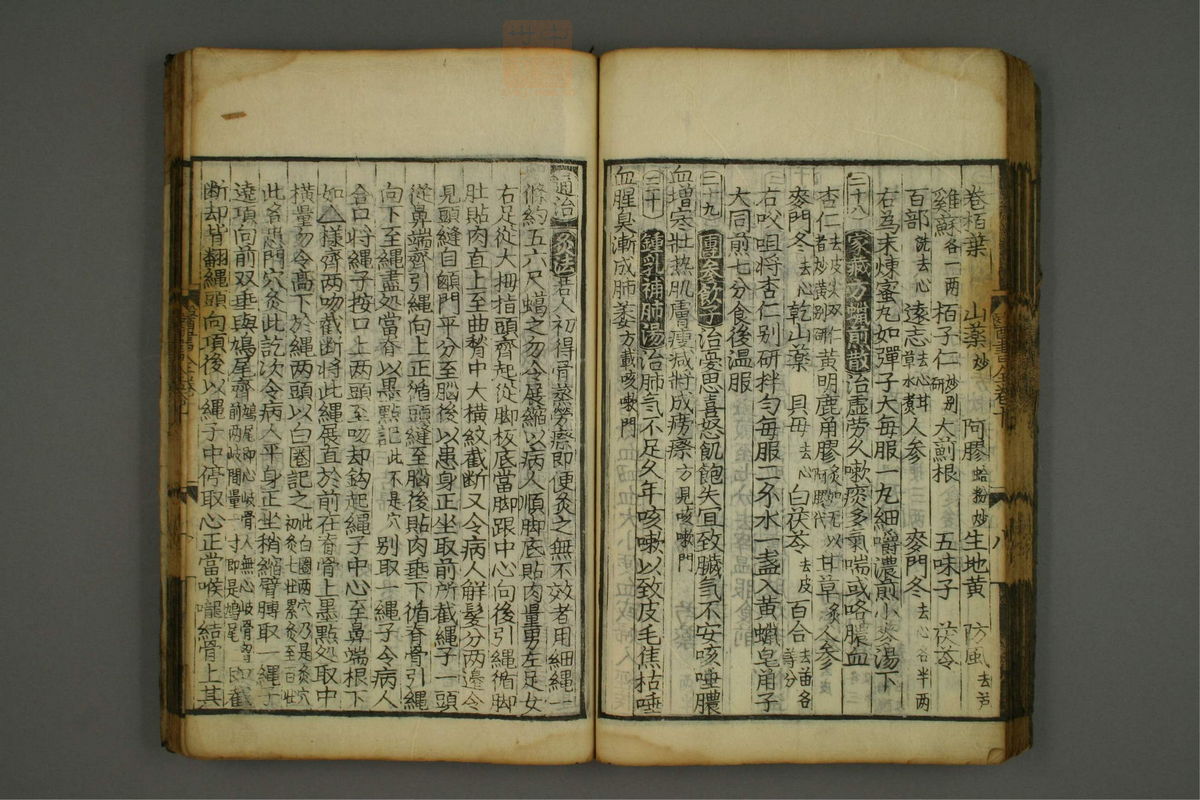 卷栢葉 山藥炒 阿膠蛤粉炒 生地黄 防風去芦
雞蘇各一兩 栢子仁炒别研 大薊根 五味子 茯苓
百部洗去心 遠志去心甘草水煮 人参 麥門冬去心各半两
右為末煉蜜丸如彈子大每服一丸細嚼濃煎小麥湯下
二十八 家藏方蠟煎散 治虚劳久嗽痰多氣喘或咯膿血
杏仁去皮尖双仁者炒黄别研 黄明鹿角膠炙如无以阿膠代 甘草炙 人参
麥門冬去心 乾山藥 貝母去心 白茯苓去皮 百合去苗各等分
右㕮咀将杏仁别研拌匀每服二不水一盏入黄蠟皂角子
大同煎七分食後温服
二十九 團参飲子 治憂思喜怒飢飽失宜致臓氣不安咳唾膿
血增寒壮热肌膚瘦减将成癆瘵方見咳嗽門
三十 鍾乳補肺湯 治肺氣不足久年咳嗽以致皮毛焦枯唾
血腥臭漸成肺萎方載咳嗽門
通治 灸法 若人初得骨蒸劳瘵即便灸之無不效者用細繩一
條約五六尺蠟之勿令展縮以病人順脚底貼肉量男左足女
右足從大拇指頭齊起從脚板底當脚跟中心向後引繩循脚
肚貼肉直上至曲䐐中大横紋截断又令病人解髮分两邉令
見頭縫自顖門平分至腦後以患身正坐取前所截繩子一頭
從鼻端齊引繩向上正循頭縫至腦後貼肉垂下循脊骨引繩
向下至繩盡処當脊以墨點記此不是穴 别取一繩子令病人
合口将繩子按口上两頭至吻却鈎起繩子中心至鼻端根下
如△樣齊两吻截断将此繩展直於前在脊骨上墨點処取中
横量勿令高下於繩两頭以白圈記之此白圈两穴乃是灸穴初灸七壮累灸至百壮
此名患門穴灸此訖次令病人平身正坐稍縮臂膊取一繩子
遶項向前双垂與鳩尾齊鳩尾即心岐骨人無心岐骨者前两岐間量一寸即是鳩尾 即截
断却背翻繩頭向項後以繩子中停取心正當喉嚨結骨上其